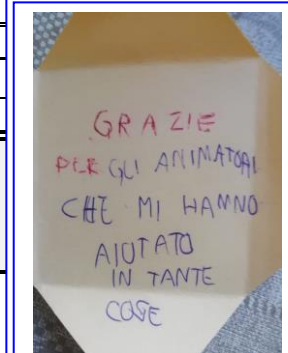 GRAZIE
PER GLI ANIMATORI
CHE MI HANNO
AIUTATO
IN TANTE
COSE